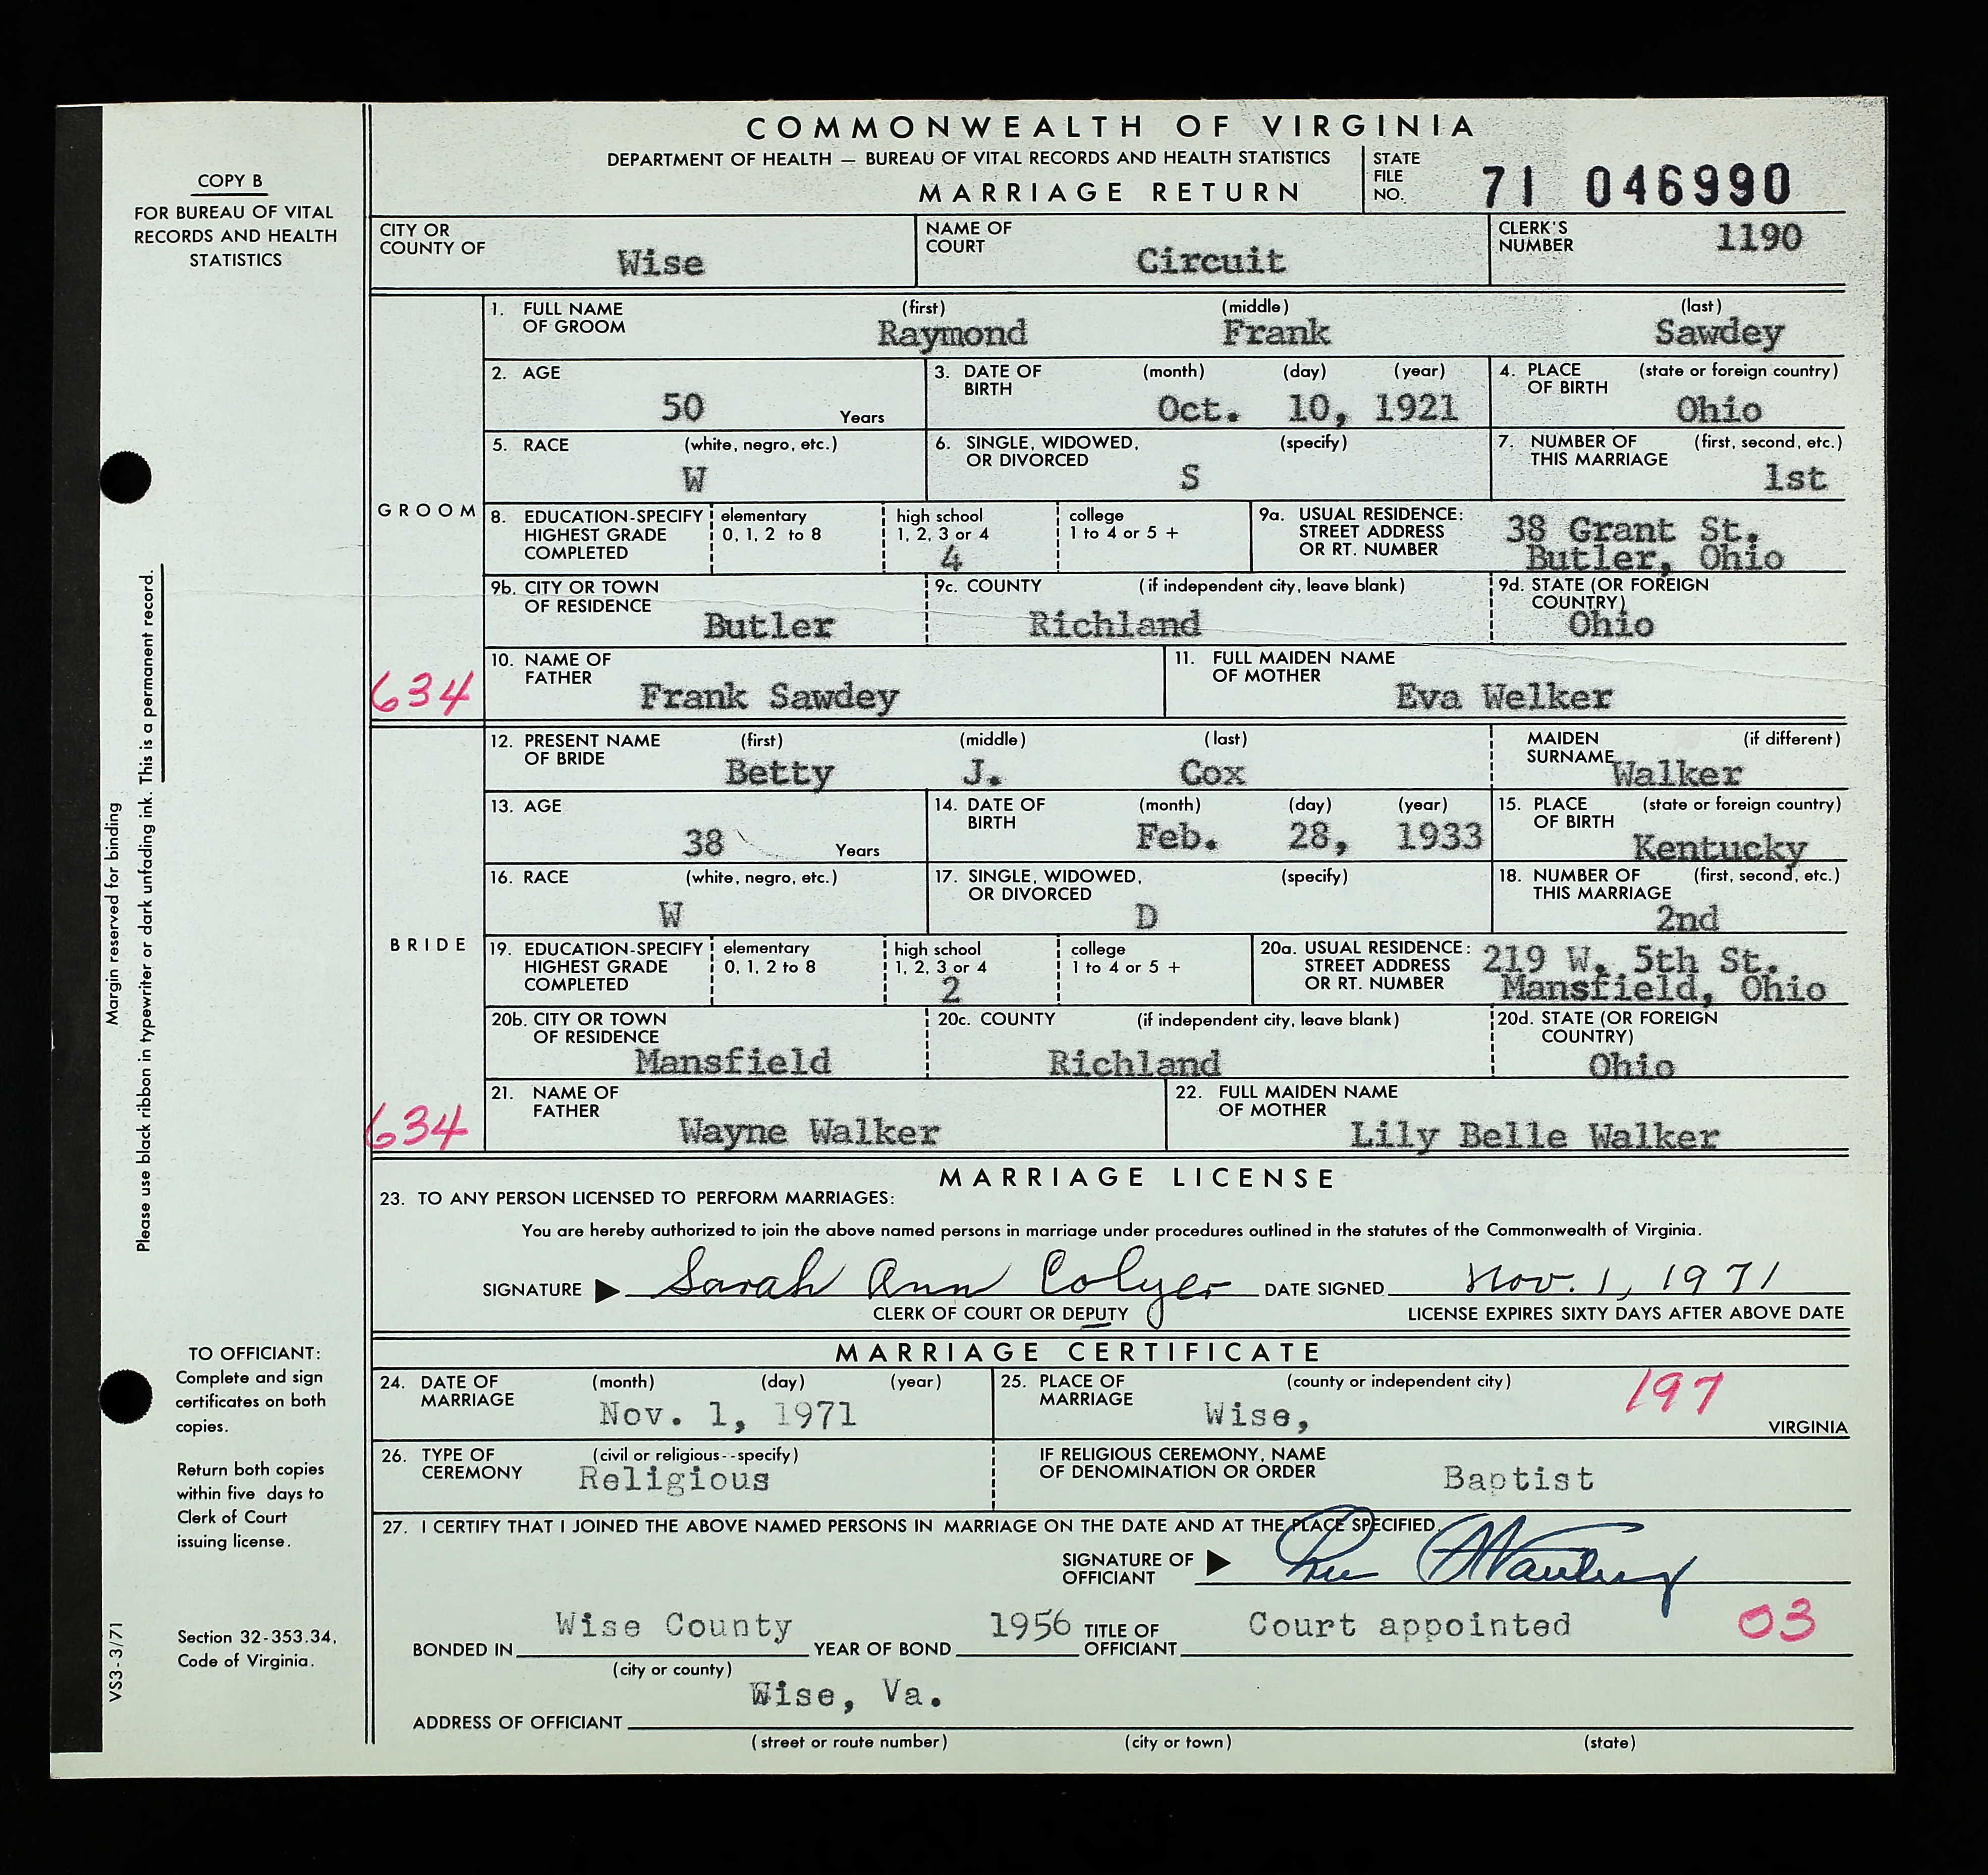 COMMONWEALTH OF VIRGINIA
DEPARTMENT OF HEALTH — BUREAU OF VITAL RECORDS AND HEALTH STATISTICS
MARRIAGE RETURN
STATE FILE NO. 71 046990
COPY B
FOR BUREAU OF VITAL
RECORDS AND HEALTH
STATISTICS
CITY OR COUNTY OF Wise
NAME OF COURT Circuit
CLERK'S NUMBER 1190
GROOM
1. FULL NAME OF GROOM (first) Raymond (middle) Frank (last) Sawdey
2. AGE 50 Years
3. DATE OF BIRTH (month) (day) (year) Oct. 10, 1921
4. PLACE OF BIRTH (state or foreign country) Ohio
5. RACE (white, negro, etc.) W
6. SINGLE, WIDOWED, OR DIVORCED (specify) S
7. NUMBER OF THIS MARRIAGE (first, second, etc.) 1st
8. EDUCATION-SPECIFY HIGHEST GRADE COMPLETED
elementary 0, 1, 2 to 8
high school 1, 2, 3 or 4 4
college 1 to 4 or 5 +
9a. USUAL RESIDENCE: STREET ADDRESS OR RT. NUMBER 38 Grant St. Butler, Ohio
9b. CITY OR TOWN OF RESIDENCE Butler
9c. COUNTY (if independent city, leave blank) Richland
9d. STATE (OR FOREIGN COUNTRY) Ohio
634
10. NAME OF FATHER Frank Sawdey
11. FULL MAIDEN NAME OF MOTHER Eva Welker
BRIDE
12. PRESENT NAME OF BRIDE (first) Betty (middle) J. (last) Cox
MAIDEN SURNAME (if different) Walker
13. AGE 38 Years
14. DATE OF BIRTH (month) (day) (year) Feb. 28, 1933
15. PLACE OF BIRTH (state or foreign country) Kentucky
16. RACE (white, negro, etc.) W
17. SINGLE, WIDOWED, OR DIVORCED (specify) D
18. NUMBER OF THIS MARRIAGE (first, second, etc.) 2nd
19. EDUCATION-SPECIFY HIGHEST GRADE COMPLETED
elementary 0, 1, 2 to 8
high school 1, 2, 3 or 4 2
college 1 to 4 or 5 +
20a. USUAL RESIDENCE: STREET ADDRESS OR RT. NUMBER 219 W. 5th St. Mansfield, Ohio
20b. CITY OR TOWN OF RESIDENCE Mansfield
20c. COUNTY (if independent city, leave blank) Richland
20d. STATE (OR FOREIGN COUNTRY) Ohio
634
21. NAME OF FATHER Wayne Walker
22. FULL MAIDEN NAME OF MOTHER Lily Belle Walker
MARRIAGE LICENSE
23. TO ANY PERSON LICENSED TO PERFORM MARRIAGES:
You are hereby authorized to join the above named persons in marriage under procedures outlined in the statutes of the Commonwealth of Virginia.
SIGNATURE Sarah Ann Colyer DATE SIGNED Nov. 1, 1971
CLERK OF COURT OR DEPUTY LICENSE EXPIRES SIXTY DAYS AFTER ABOVE DATE
MARRIAGE CERTIFICATE
24. DATE OF MARRIAGE (month) (day) (year) Nov. 1, 1971
25. PLACE OF MARRIAGE (county or independent city) Wise, 197 VIRGINIA
26. TYPE OF CEREMONY (civil or religious--specify) Religious
IF RELIGIOUS CEREMONY, NAME OF DENOMINATION OR ORDER Baptist
27. I CERTIFY THAT I JOINED THE ABOVE NAMED PERSONS IN MARRIAGE ON THE DATE AND AT THE PLACE SPECIFIED.
SIGNATURE OF OFFICIANT
BONDED IN Wise County YEAR OF BOND 1956 TITLE OF OFFICIANT Court appointed 03
(city or county)
ADDRESS OF OFFICIANT Wise, Va.
(street or route number) (city or town) (state)
Margin reserved for binding
Please use black ribbon in typewriter or dark unfading ink. This is a permanent record.
TO OFFICIANT:
Complete and sign
certificates on both
copies.
Return both copies
within five days to
Clerk of Court
issuing license.
Section 32-353.34,
Code of Virginia.
VS3-3/71